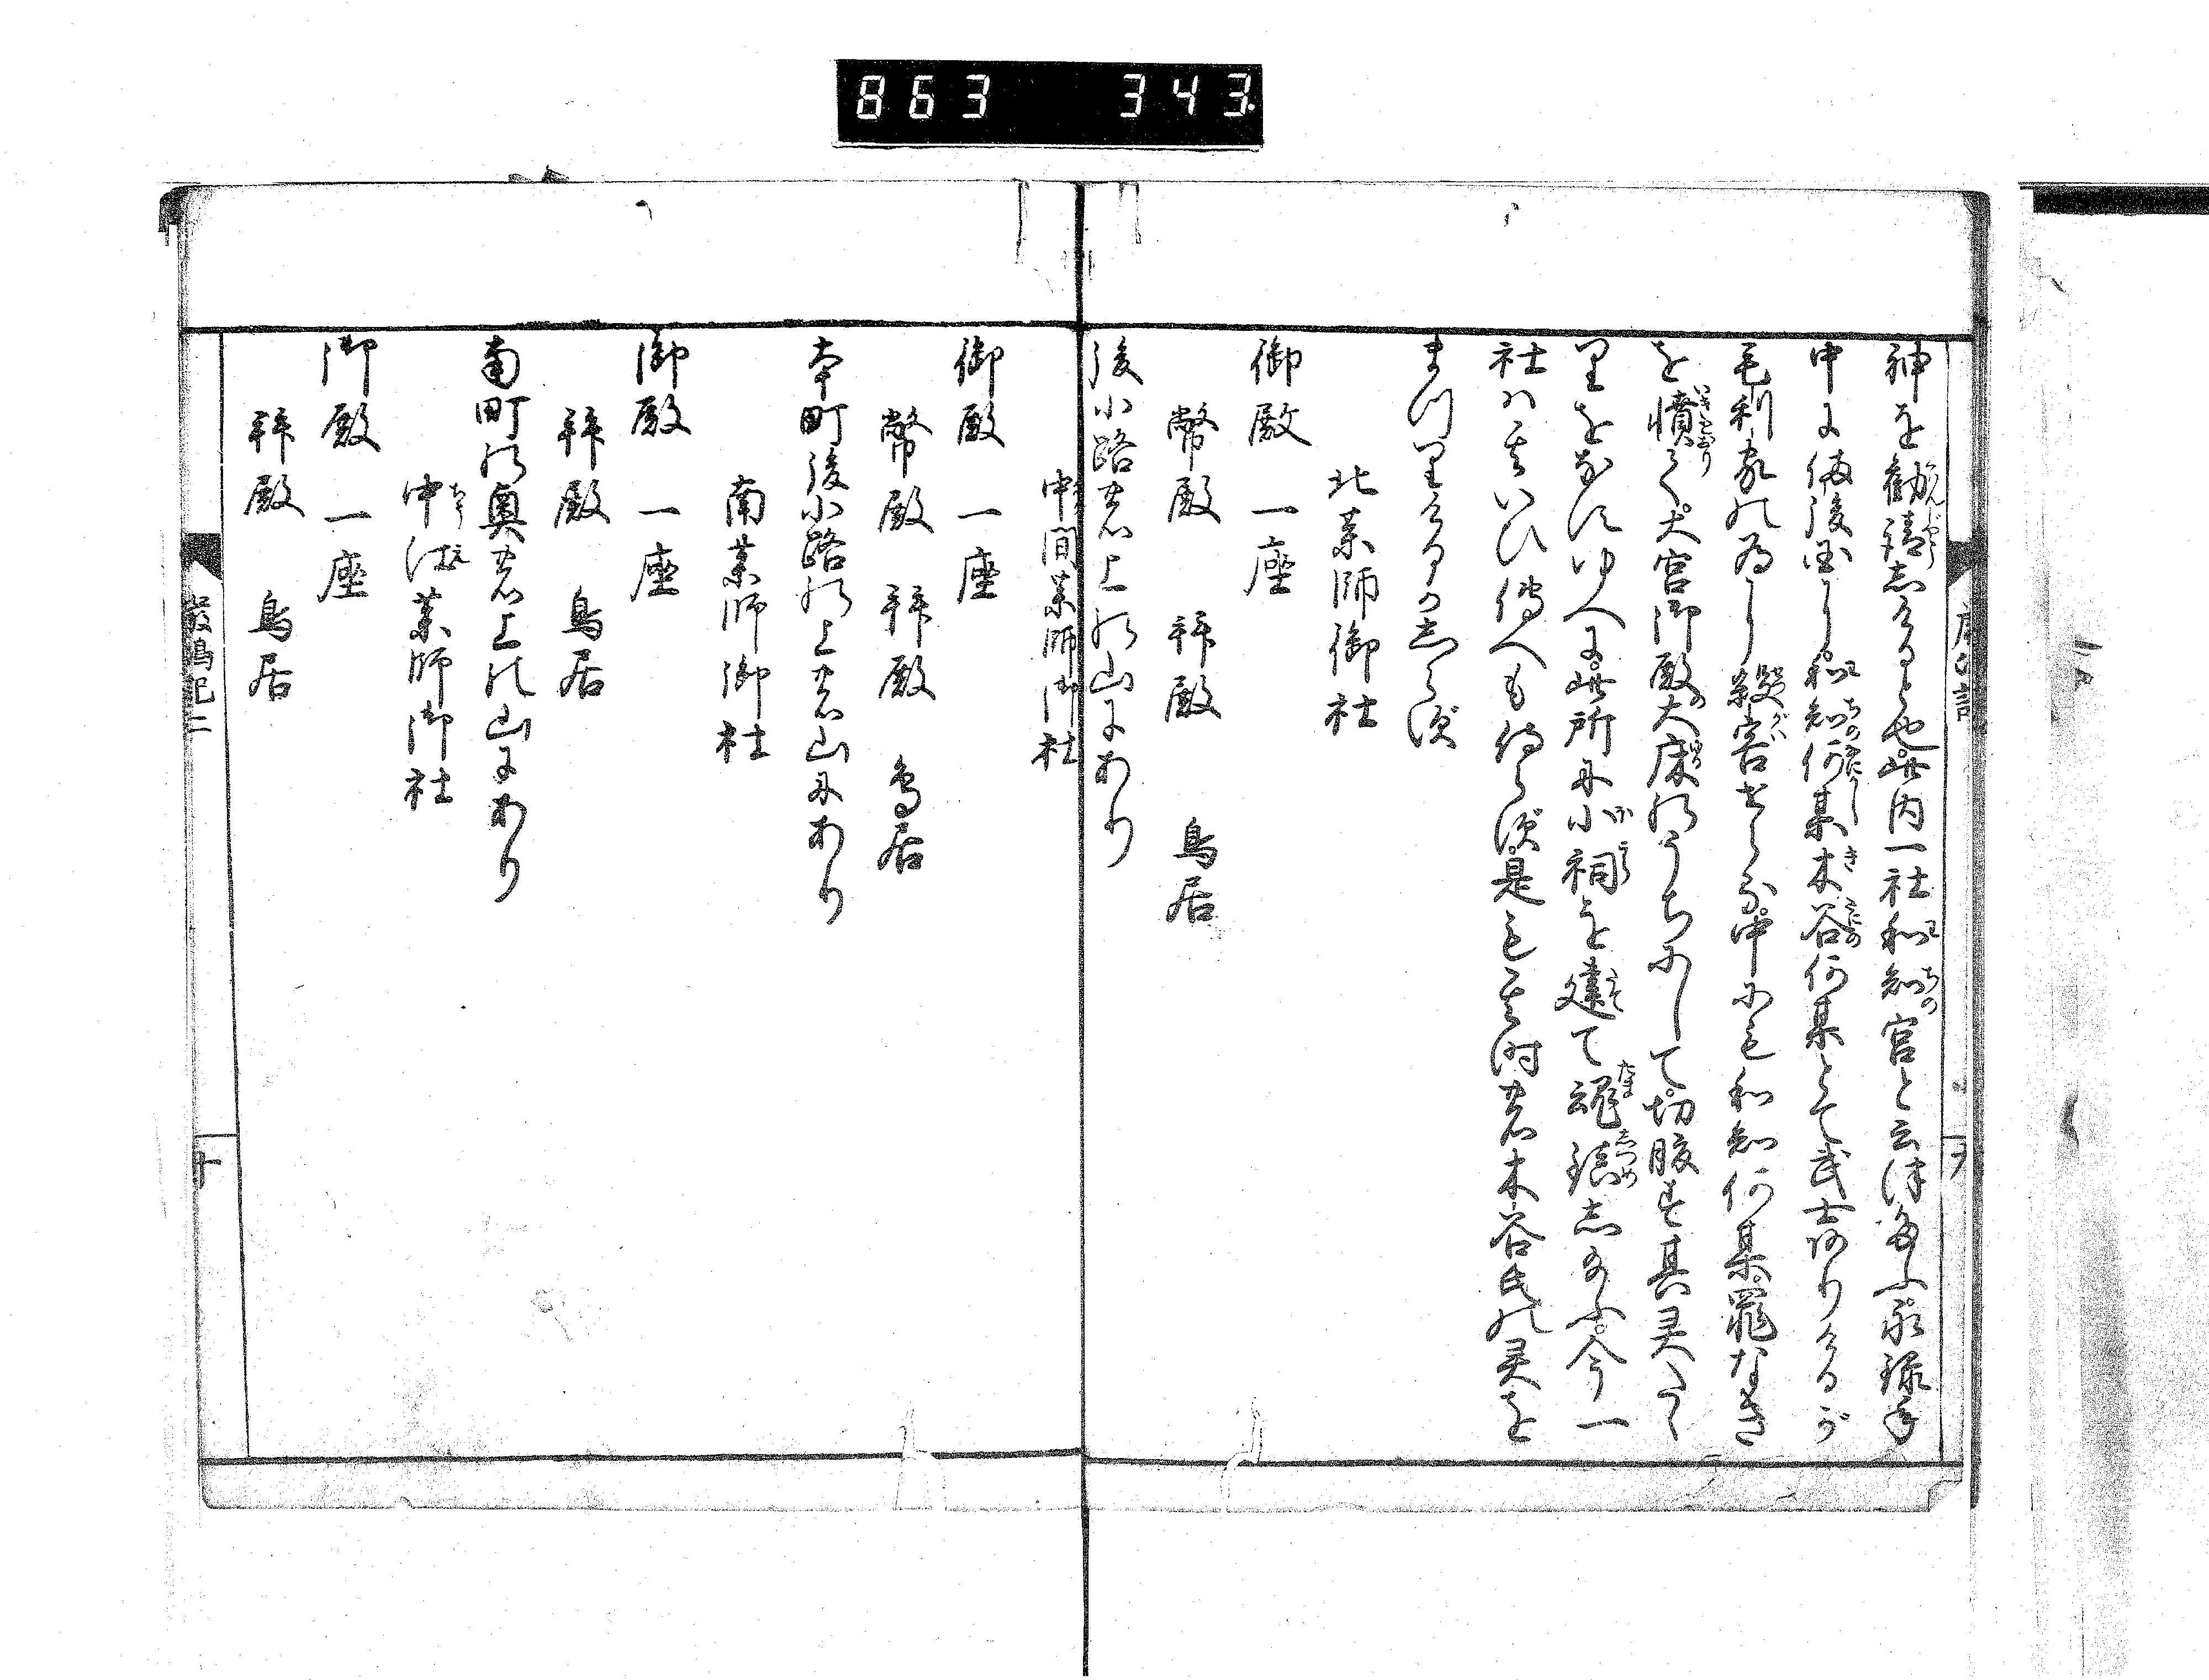 863 343
神を勧請しけるとや此内一社和知の宮と云伝ふ永禄年
中に備後国に和知何某木谷何某とて武士ありけるが
毛利家の為に殺害せらる中にも和知何某罪なき
を憤りて大宮御殿の大床のうちにして切腹す其灵たゝ
りをなすゆへに此所に小祠を建て魂鎮しなふ今一
社ハ其いひ傳へも侍らず是も其時の木谷氏の灵を
まつりけるかしらず
北薬師御社
御殿 一座
幣殿 拝殿 鳥居
後小路の上の山にあり
中間薬師御社
御殿 一座
幣殿 拝殿 鳥居
本町後小路の上の山にあり
南薬師御社
御殿 一座
拝殿 鳥居
南町の奥の上の山にあり
中江薬師御社
御殿 一座
拝殿 鳥居
厳島記二
十